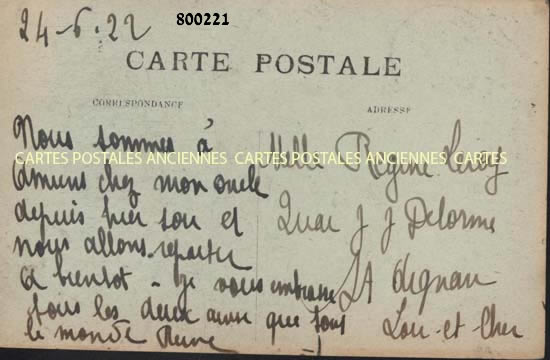 24-6-22
800221
CARTE POSTALE
CORRESPONDANCE
ADRESSE
Nous sommes à
CARTES POSTALES ANCIENNES CARTES POSTALES ANCIENNES
Amiens chez mon oncle
depuis hier soir et
nous allons repartir
A bientot - je vous embrasse
tous les deux ainsi que tous
le monde
Melle Regine Leroy
Quai J J Delorme
St Aignan
Loir-et-Cher